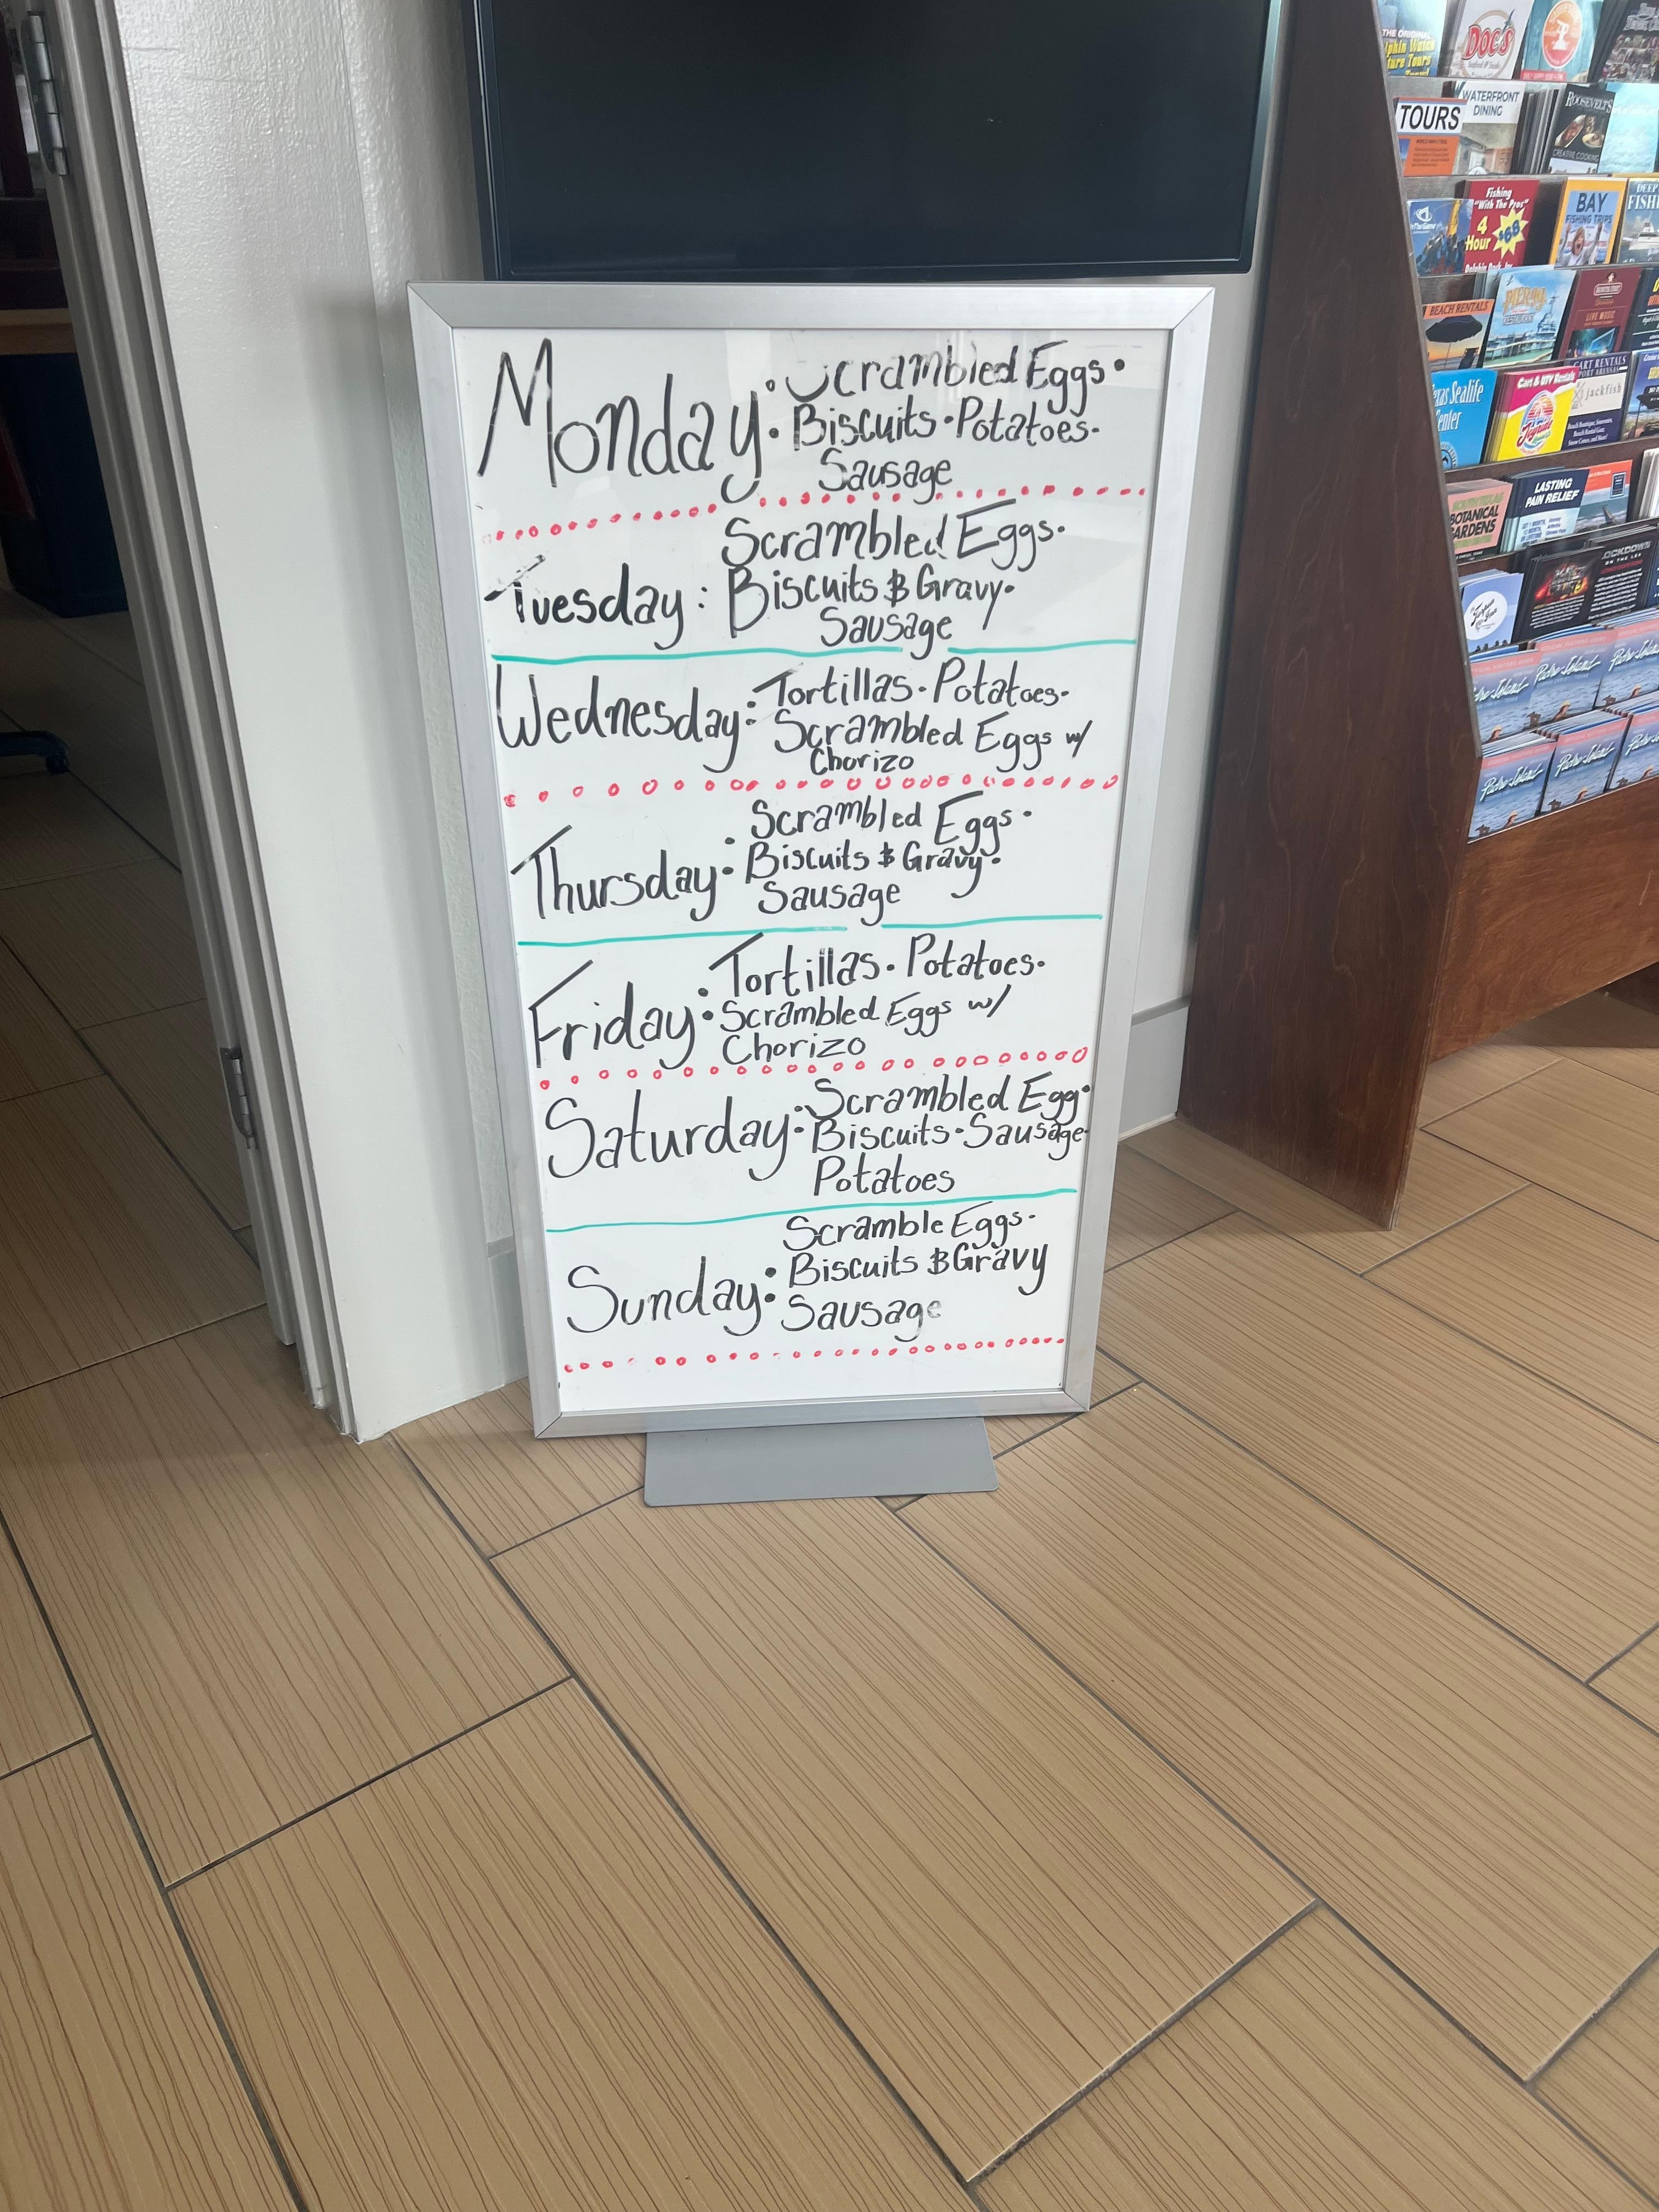 Monday: Scrambled Eggs •
Biscuits • Potatoes •
Sausage
Scrambled Eggs •
Tuesday: Biscuits & Gravy •
Sausage
Wednesday: Tortillas • Potatoes •
Scrambled Eggs w/
Chorizo
Scrambled Eggs •
Thursday: Biscuits & Gravy •
Sausage
Tortillas • Potatoes •
Friday: Scrambled Eggs w/
Chorizo
Saturday: Scrambled Egg •
Biscuits • Sausage •
Potatoes
Scramble Eggs •
Sunday: Biscuits & Gravy
Sausage
THE ORIGINAL
DOC'S
TOURS
WATERFRONT
DINING
ROOSEVELT'S
CREATIVE COOKING
Fishing
"With The Pros"
4
Hour
$68
BAY
FISHING TRIPS
DEEP
BEACH RENTALS
RESTAURANT
LIVE MUSIC
CART RENTALS
Cart & UTV Rentals
jackfish
LASTING
PAIN RELIEF
BOTANICAL
LOCKDOWN
Padre Island
Padre Island
Padre Island